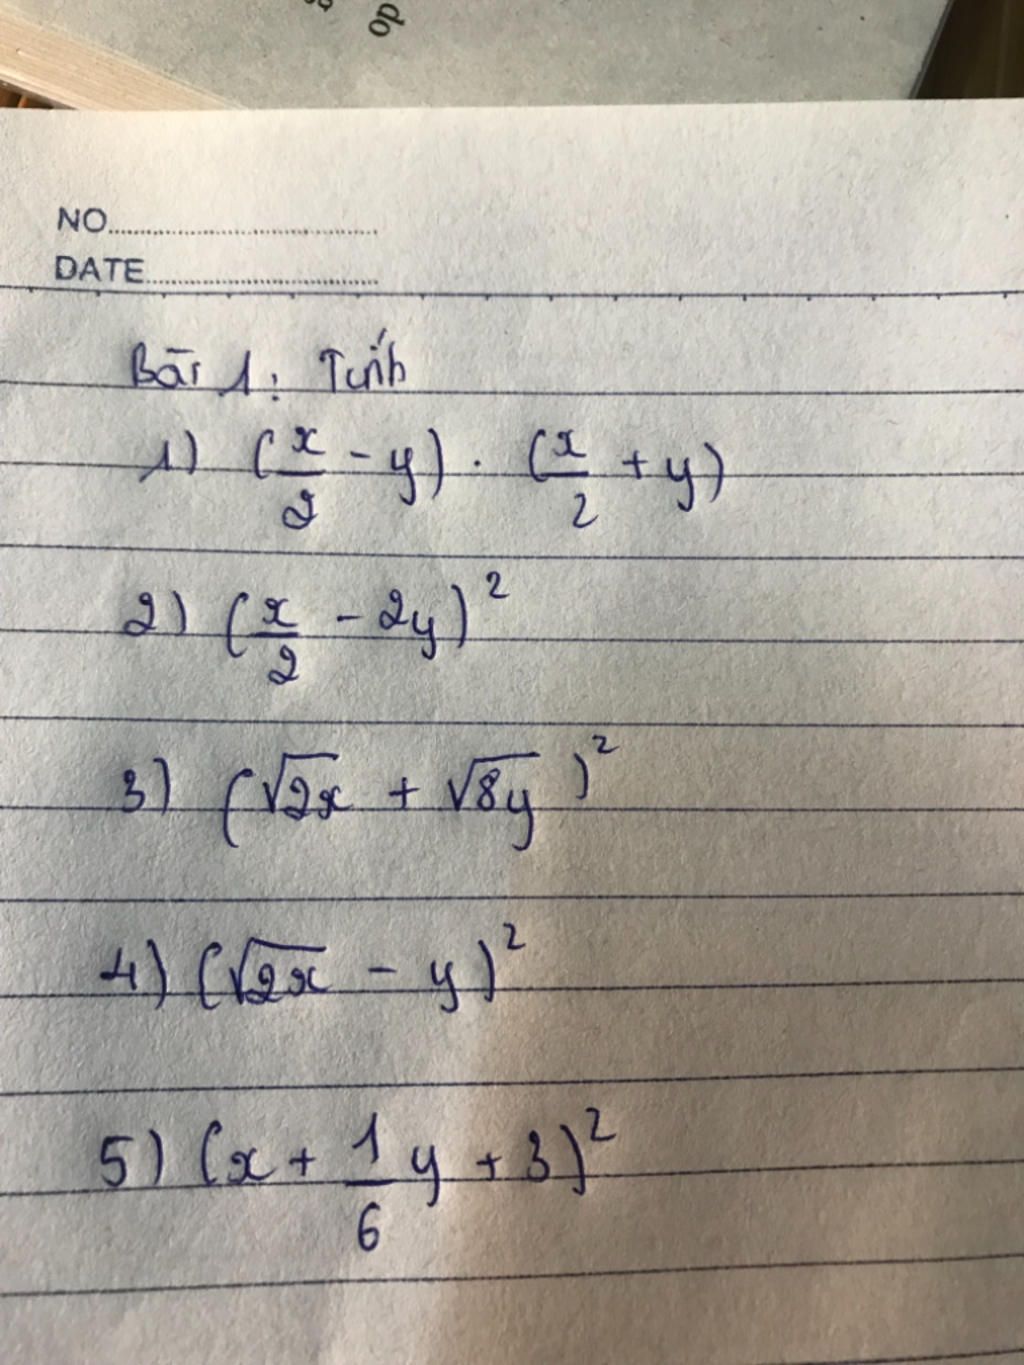 do
NO
DATE
Bài 1: Tính
1) (x/2 - y) . (x/2 + y)
2) (x/2 - 2y)²
3) (√2x + √8y)²
4) (√2x - y)²
5) (x + 1/6 y + 3)²